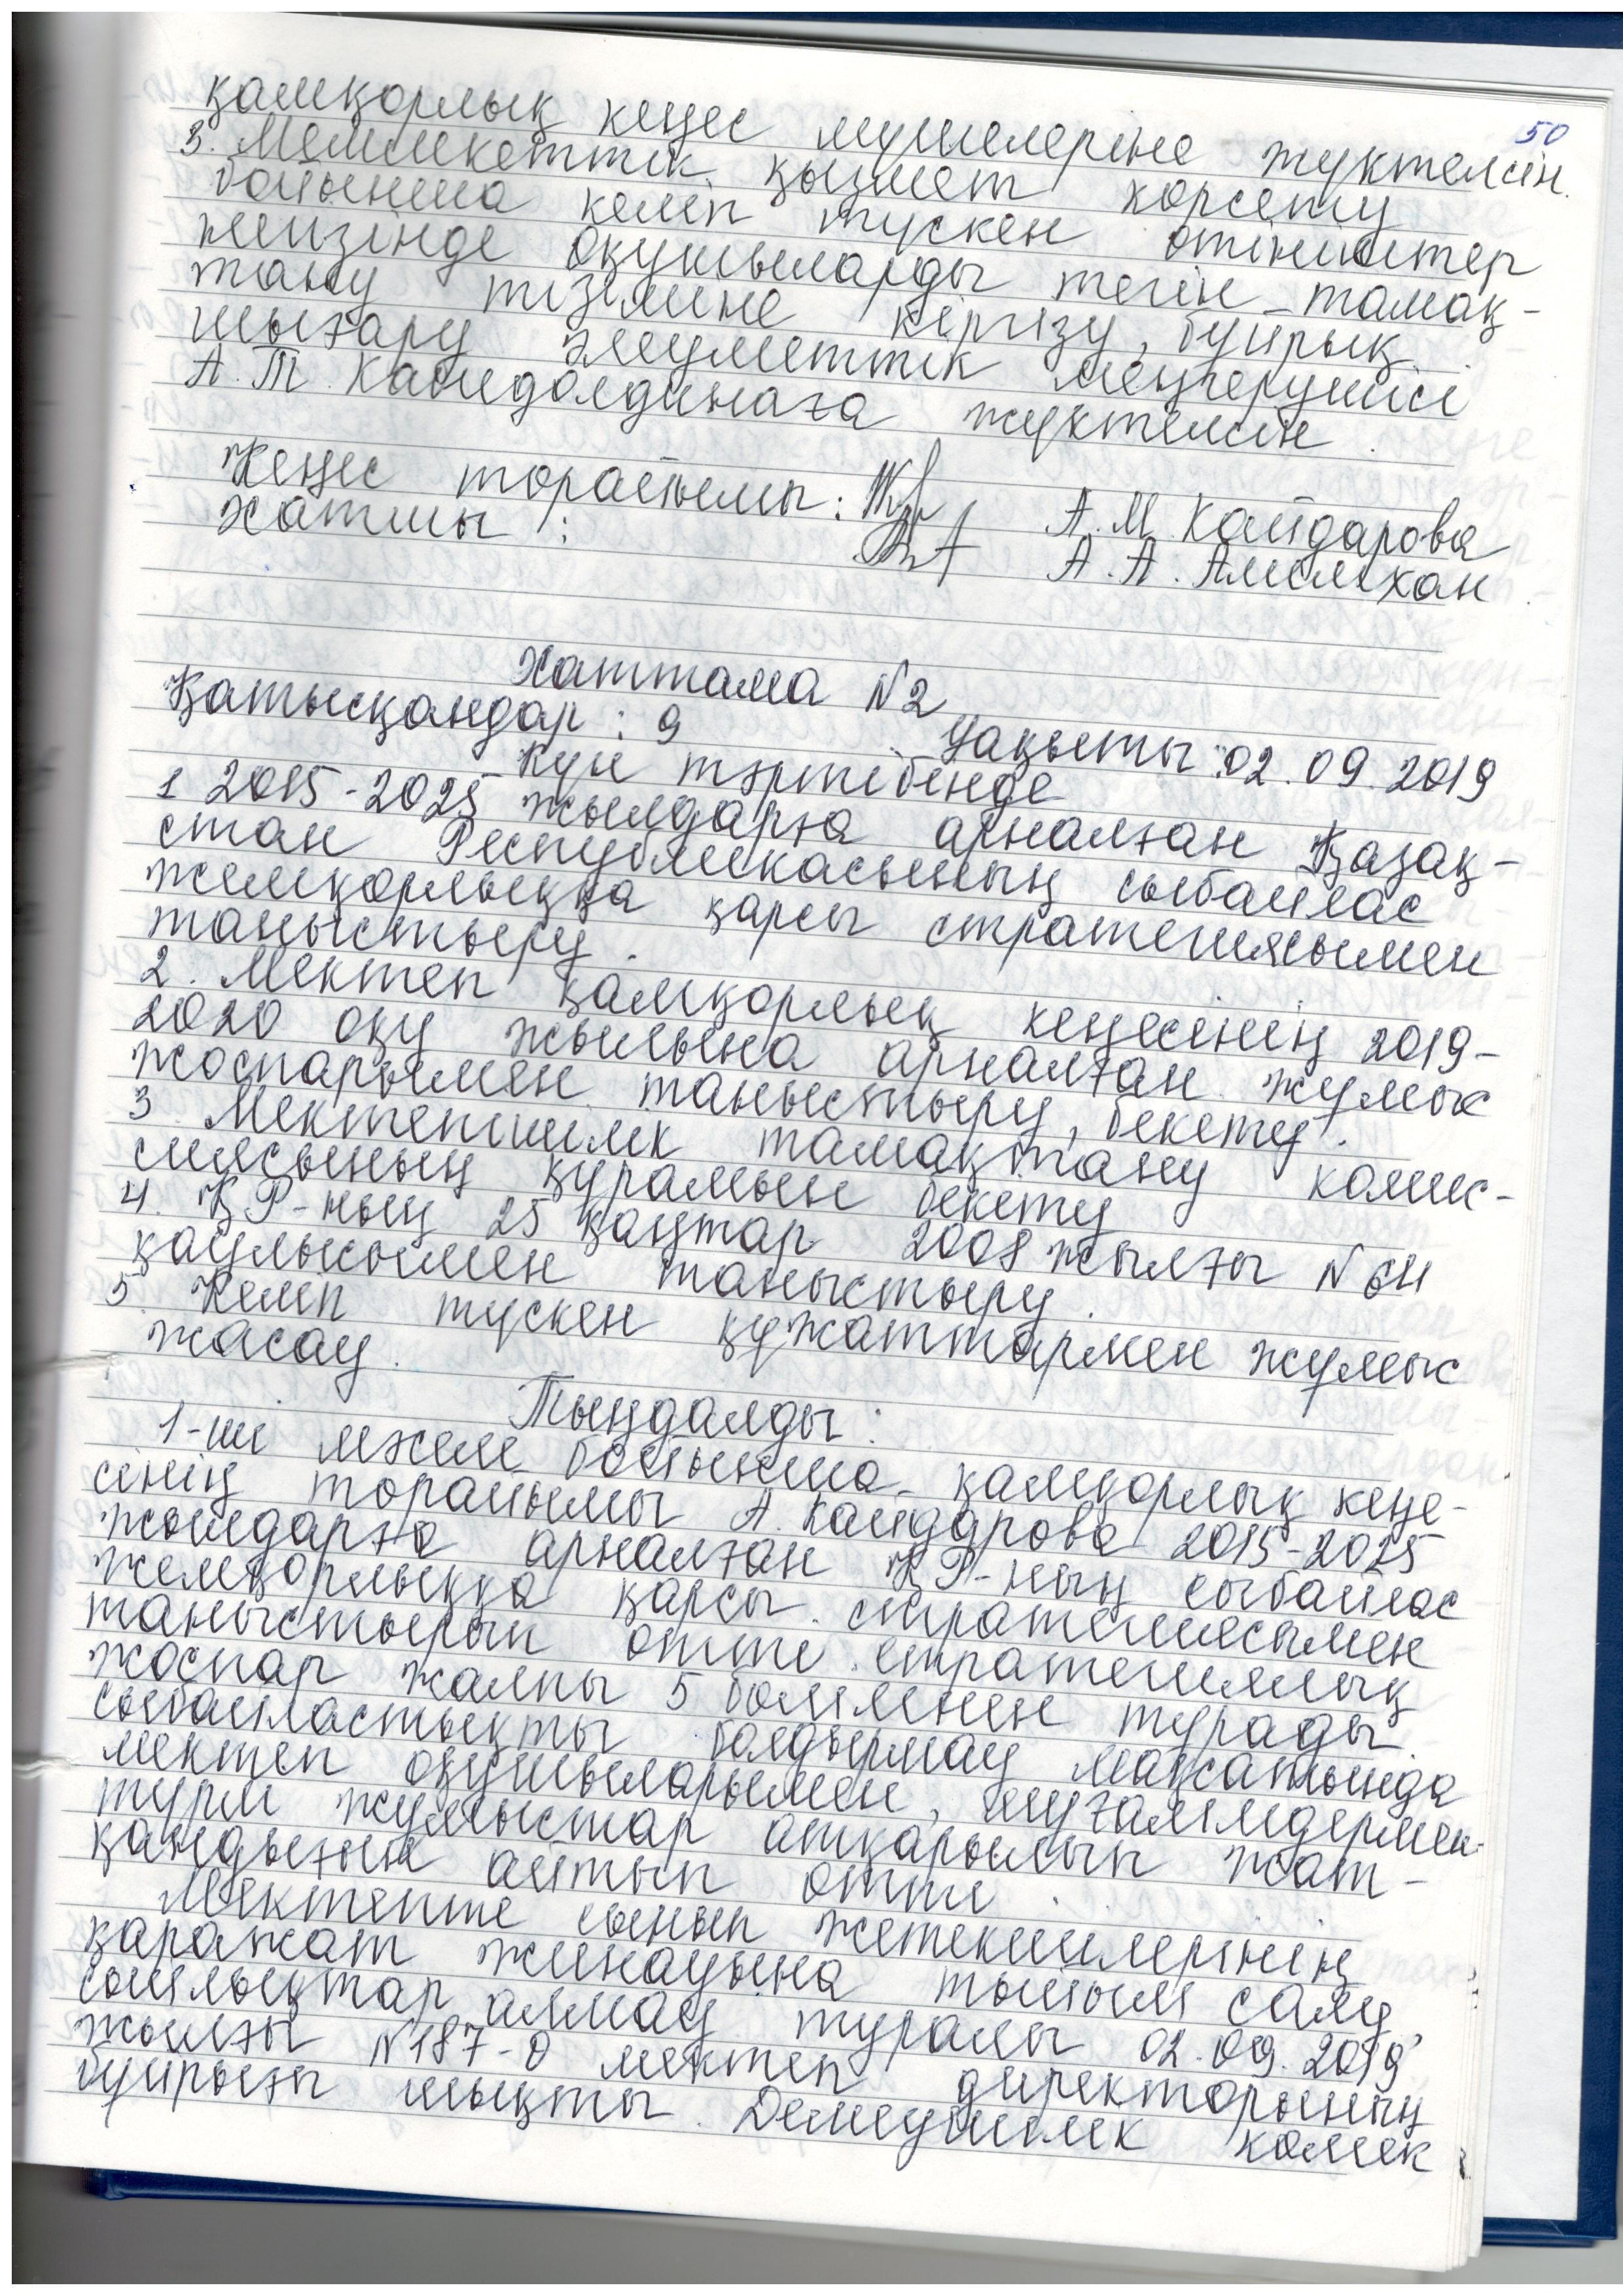 50
қамқорлық кеңес мүшелеріне жүктелсін.
3. Мемлекеттік қызмет көрсету
бойынша келіп түскен өтініштер
негізінде оқушыларды тегін тамақ-
тану тізіміне кіргізу, бұйрық
шығару әлеуметтік меңгерушісі
А.Т. Кабидолдинаға жүктелсін.
Кеңес төрайымы: А.М Кайдарова
Хатшы: А.А. Амелхан
Хаттама N2
Қатысқандар: 9 Уақыты: 02.09.2019
Күн тәртібінде
1 2015-2025 жылдарға арналған Қазақ-
стан Республикасының сыбайлас
жемқорлыққа қарсы стратегиясымен
таныстыру.
2. Мектеп қамқорлық кеңесінің 2019-
2020 оқу жылына арналған жұмыс
жоспарымен таныстыру, бекету.
3 Мектепішілік тамақтану комис-
сиясының құрамын бекету
4. ҚР-ның 25 қаңтар 2008 жылғы N64
қаулысымен таныстыру.
5. Келіп түскен құжаттармен жұмыс
жасау.
Тыңдалды:
1-ші мәселе бойынша қамқорлық кеңе-
сінің төрайымы А. Кайдарова 2015-2025
жылдарға арналған ҚР-ның сыбайлас
жемқорлыққа қарсы стратегиясымен
таныстырып өтті. стратегиялық
жоспар жалпы 5 бөлімнен тұрады.
сыбайластықты болдырмау мақсатында
мектеп оқушыларымен, мұғалімдермен
түрлі жұмыстар атқарылып жат-
қандығын айтып өтті.
Мектепте сынып жетекшілерінің
қаражат жинауына тыйым салу,
сыйлықтар алмау туралы 02.09.2019
жылғы N187-ө мектеп директорының
бұйрығы шықты. Демеушілік көмек